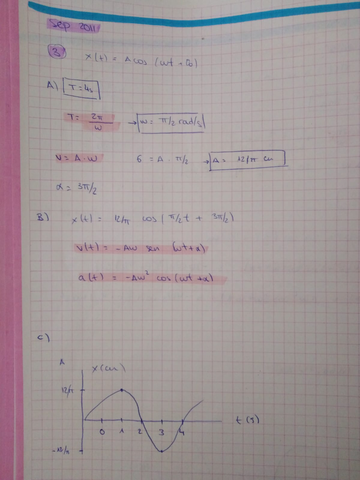 Sep 2011
2.
x(t) = A cos (wt - φ0)
A) T = 4s
T = 2π/w → w = π/2 rad/s
v = A · w 6 = A · π/2 → A = 12/π cm
α = 3π/2
B) x(t) = 12/π cos (π/2 t + 3π/2)
v(t) = -Aw sen (wt+α)
a(t) = -Aw² cos (wt+α)
c)
x(cm)
12/π
0 1 2 3 4 t(s)